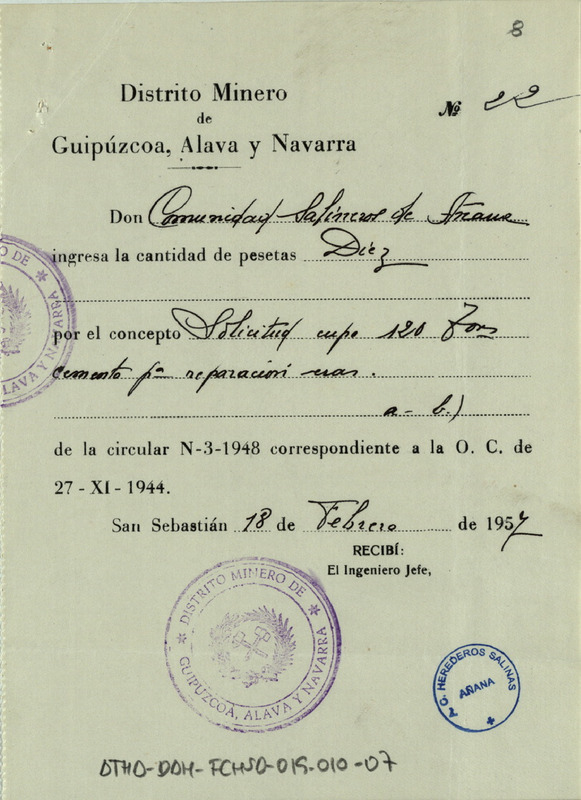 8
Distrito Minero
de
Guipúzcoa, Alava y Navarra
Nº 22
Don Comunidad Salineros de Añana
ingresa la cantidad de pesetas Diez
por el concepto Solicitud cupo 120 Tons
cemento pª reparación eras.
a- b.)
de la circular N-3-1948 correspondiente a la O. C. de
27 - XI - 1944.
San Sebastián 18 de Febrero de 1957
RECIBÍ:
El Ingeniero Jefe,
DISTRITO MINERO DE
GUIPÚZCOA, ALAVA Y NAVARRA
O DE
ALAVA Y NAVARRA
HEREDEROS SALINAS
AÑANA
DTHO-DAH-FCHSD-019-010-07